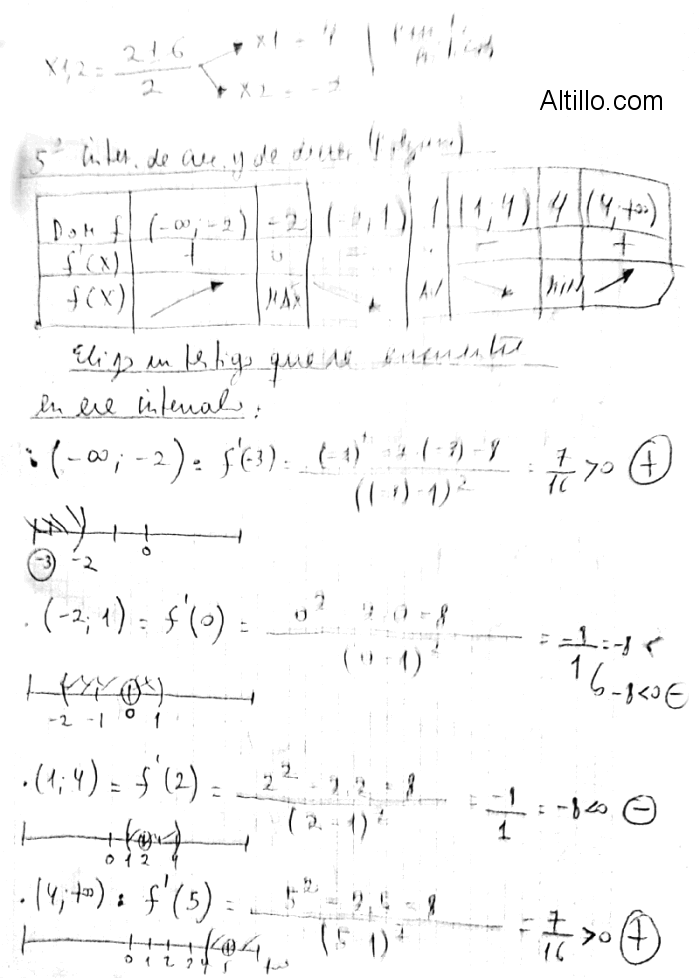 x1,2 = 2±6 / 2 x1 = 4
x2 = -2
Altillo.com
5º inter. de crec. y de decrec.
Dom f (-∞; -2) -2 (-2, 1) 1 (1, 4) 4 (4, +∞)
f'(x) + 0 - +
f(x) MAX MIN
Elijo un testigo que se encuentre
en ese intervalo:
· (-∞; -2) = f'(-3) = (-3)² - 2·(-3) - 8 / ((-3) - 1)² = 7/16 > 0 +
-3 -2 0
· (-2; 1) = f'(0) = 0² - 2·0 - 8 / (0 - 1)² = -8/1 = -8 <
-8 < 0 -
-2 -1 0 1
· (1; 4) = f'(2) = 2² - 2·2 - 8 / (2 - 1)² = -8/1 = -8 < 0 -
0 1 2 4
· (4; +∞) : f'(5) = 5² - 2·5 - 8 / (5 - 1)² = 7/16 > 0 +
0 1 2 3 4 5 +∞